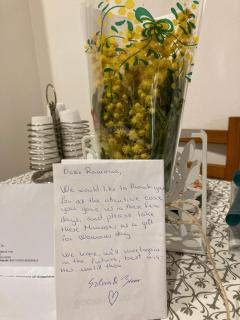 Dear Ramona,
We would like to thank you
for all the attentive care
you gave us in these few
days, and please take
these Mimosas as a gift
for Womens day
We hope, we'll meet again
in the future, best wis-
hes until then